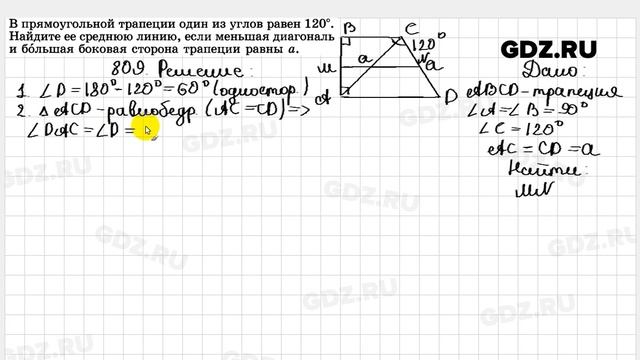 В прямоугольной трапеции один из углов равен 120°.
Найдите ее среднюю линию, если меньшая диагональ
и бо́льшая боковая сторона трапеции равны a.
809. Решение:
1. ∠D = 180° - 120° = 60° (одностор.)
2. △ACD - равнобедр. (AC = CD) =>
∠DAC = ∠D =
B
C
120°
M
a
N
a
A
D
GDZ.RU
Дано:
ABCD - трапеция
∠A = ∠B = 90°
∠C = 120°
AC = CD = a
Найти:
MN
GDZ.RU
GDZ.RU
GDZ.RU
GDZ.RU
GDZ.RU